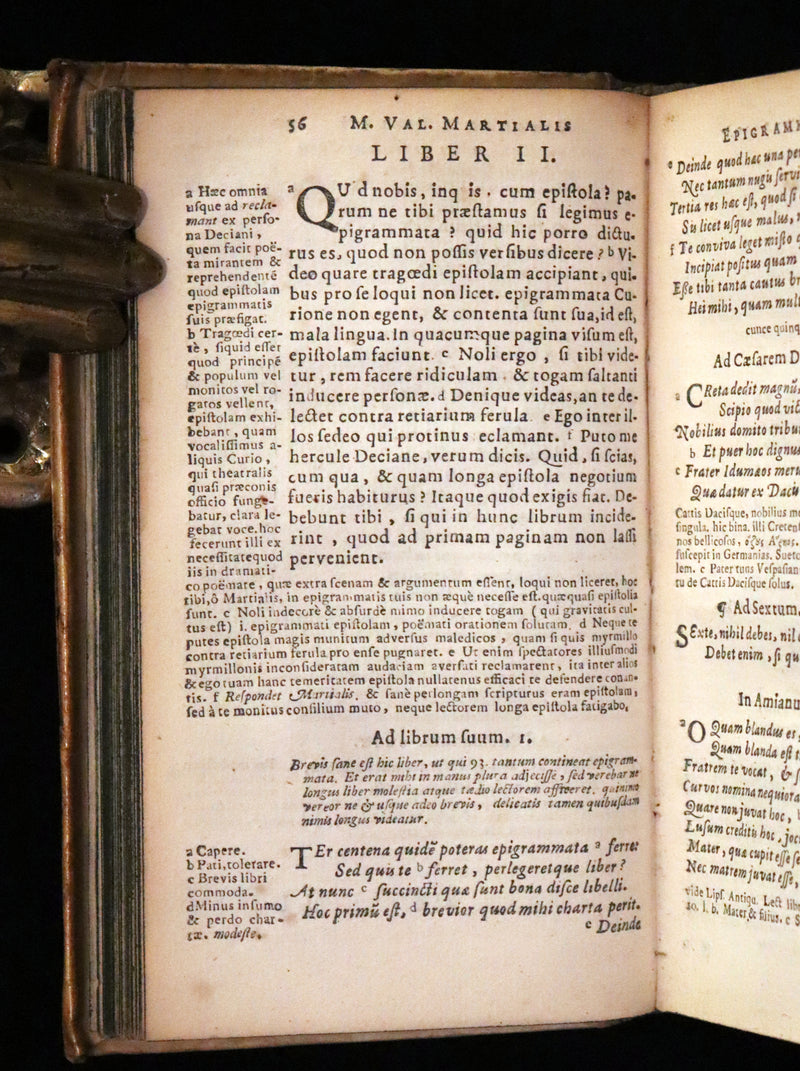 56 M. VAL. MARTIALIS
LIBER II.
a Hæc omnia
uſque ad recla-
mant ex perſo-
na Deciani,
quem facit poë-
ta mirantem &
reprehendentē
quod epiſtolam
epigrammatis
ſuis præfigat.
b Tragœdi cer-
tè, ſiquid eſſet
quod principē
& populum vel
monitos vel ro-
gatos vellent,
epiſtolam exhi-
bebant, quam
vocaliſſimus a-
liquis Curio,
qui theatralis
quaſi præconis
officio funge-
batur, clara le-
gebat voce. hoc
fecerunt illi ex
neceſſitate quod
iis in dramati-
a QUid nobis, inquis, cum epiſtola? pa-
rum ne tibi præſtamus ſi legimus e-
pigrammata? quid hic porro dictu-
rus es, quod non poſſis verſibus dicere? b Vi-
deo quare tragœdi epiſtolam accipiant, qui-
bus pro ſe loqui non licet. epigrammata Cu-
rione non egent, & contenta ſunt ſua, id eſt,
mala lingua. In quacumque pagina viſum eſt,
epiſtolam faciunt. c Noli ergo, ſi tibi vide-
tur, rem facere ridiculam. & togam ſaltanti
inducere perſonæ. d Denique videas, an te de-
lectet contra retiarium ferula. e Ego inter il-
los ſedeo qui protinus eclamant. f Puto me
hercule Deciane, verum dicis. Quid, ſi ſcias,
cum qua, & quam longa epiſtola negotium
fueris habiturus? Itaque quod exigis fiat. De-
bebunt tibi, ſi qui in hunc librum incide-
rint, quod ad primam paginam non laſſi
pervenient.
co poëmate, quæ extra ſcenam & argumentum eſſent, loqui non liceret, hoc
tibi, ô Martialis, in epigrammatis tuis non æquè neceſſe eſt. quæ quaſi epiſtolia
ſunt. c Noli indecorè & abſurdè mimo inducere togam (qui gravitatis cul-
tus eſt) i. epigrammati epiſtolam, poëmati orationem ſolutam. d Neque te
putes epiſtola magis munitum adverſus maledicos, quam ſi quis myrmillo
contra retiarium ferula pro enſe pugnaret. e Ut enim ſpectatores illiuſmodi
myrmillonis inconſideratam audaciam averſati reclamarent, ita inter alios
& ego tuam hanc temeritatem epiſtola nullatenus efficaci te defendere conan-
tis. f Reſpondet Martialis. & ſanè perlongam ſcripturus eram epiſtolam,
ſed à te monitus conſilium muto, neque lectorem longa epiſtola fatigabo.
Ad librum ſuum. 1.
Brevis ſane eſt hic liber, ut qui 93. tantum contineat epigram-
mata. Et erat mihi in manus plura adjeciſſe, ſed verebar ne
longus liber moleſtia atque tædio lectorem afficeret. quinimo
vereor ne & uſque adeo brevis, delicatis tamen quibuſdam
nimis longus videatur.
a Capere.
b Pati, tolerare.
c Brevis libri
commoda.
d Minus inſumo
& perdo char-
tæ. modeſte.
TEr centena quidē poteras epigrammata a ferre:
Sed quis te b ferret, perlegeretque liber?
At nunc c ſuccincti quæ ſunt bona diſce libelli.
Hoc primū eſt, d brevior quod mihi charta perit.
e Deinde
EPIGRAMM
e Deinde quod hac una pe
Nec tantum nugis ſervi
Tertia res hæc eſt, quod ſi
Sis licet uſque malus,
f Te conviva leget miſto
Incipiat poſitus quam
Eſſe tibi tanta cautus br
Hei mihi, quam mult
cunce quinq
Ad Cæſarem D
a CReta dedit magnū,
Scipio quod vic
Nobilius domito tribu
b Et puer hoc dignus
c Frater Idumæos meru
Quæ datur ex Dacis
Cattis Daciſque, nobilius
ſingula. hic bina. illi Cretenſ
nos bellicoſos,
ſuſcepit in Germanias. Sueto
lem. c Pater tuus Veſpaſian
tu de Cattis Daciſque ſolus.
¶ Ad Sextum.
SExte, nihil debes, nil
Debet enim, ſi qu
In Amianu
a O Quam blandus es,
Quam blanda eſt
Fratrem te vocat, &
Curvos nomina nequiora
Quare non juvat hoc,
Luſum creditis hoc, joc
Mater, quæ cupit eſſe ſe
Nec matrem juvat eſſe,
vide Lipſ. Antiqu. Lect. lib
10. l. b. Mater & filius. c S